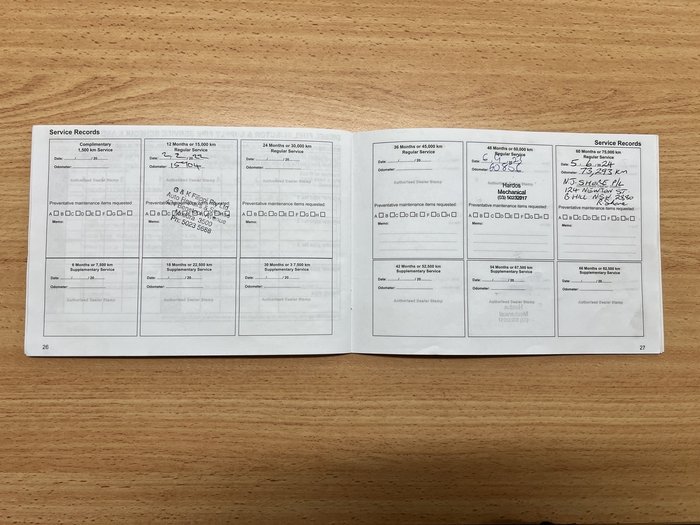 Service Records
Complimentary
1,500 km Service
Date: / / 20
Odometer:
Authorised Dealer Stamp
Preventative maintenance items requested:
A B C D E F G H
Memo:
12 Months or 15,000 km
Regular Service
Date:
Odometer:
Auto
Mildura 3500
Ph: 5023 5688
A B C D E F G H
Memo:
24 Months or 30,000 km
Regular Service
Date: / / 20
Odometer:
Authorised Dealer Stamp
Preventative maintenance items requested:
A B C D E F G H
Memo:
6 Months or 7,500 km
Supplementary Service
Date: / / 20
Odometer:
Authorised Dealer Stamp
18 Months or 22,500 km
Supplementary Service
Date: / / 20
Odometer:
Authorised Dealer Stamp
30 Months or 3.7,500 km
Supplementary Service
Date: / / 20
Odometer:
Authorised Dealer Stamp
26
Service Records
36 Months or 45,000 km
Regular Service
Date: / / 20
Odometer:
Authorised Dealer Stamp
Preventative maintenance items requested:
A B C D E F G H
Memo:
48 Months or 60,000 km
Regular Service
Date: 6
Odometer: 60856
Hardos
Mechanical
(03) 50232017
Preventative maintenance items requested:
A B C D E F G H
Memo:
60 Months or 75,000 km
Regular Service
Date: 5.6.24
Odometer: 73,293 KM
N.J. SHORE P/L
124 NEWTON ST
B HILL NSW 2880
Preventative maintenance items requested:
R Shore
A B C D E F G H
Memo:
42 Months or 52,500 km
Supplementary Service
Date: / / 20
Odometer:
Authorised Dealer Stamp
54 Months or 67,500 km
Supplementary Service
Date: / / 20
Odometer:
Authorised Dealer Stamp
66 Months or 82,500 km
Supplementary Service
Date: / / 20
Odometer:
Authorised Dealer Stamp
27